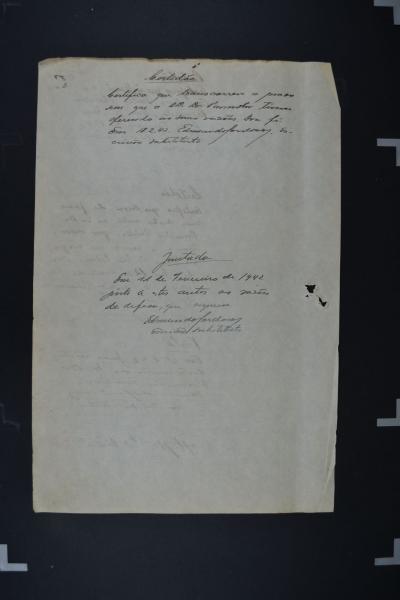 Certidão
Certifico que transcorreu o prazo
em que o DR. Dr. Promotor
offerecido as suas razões Dou fé
Edmundo Cardoso, es-
crivão substituto
Juntada
Em de Fevereiro de 1942
junto a estes autos as razões
de defesa, que seguem
Edmundo Cardoso
escrivão substituto